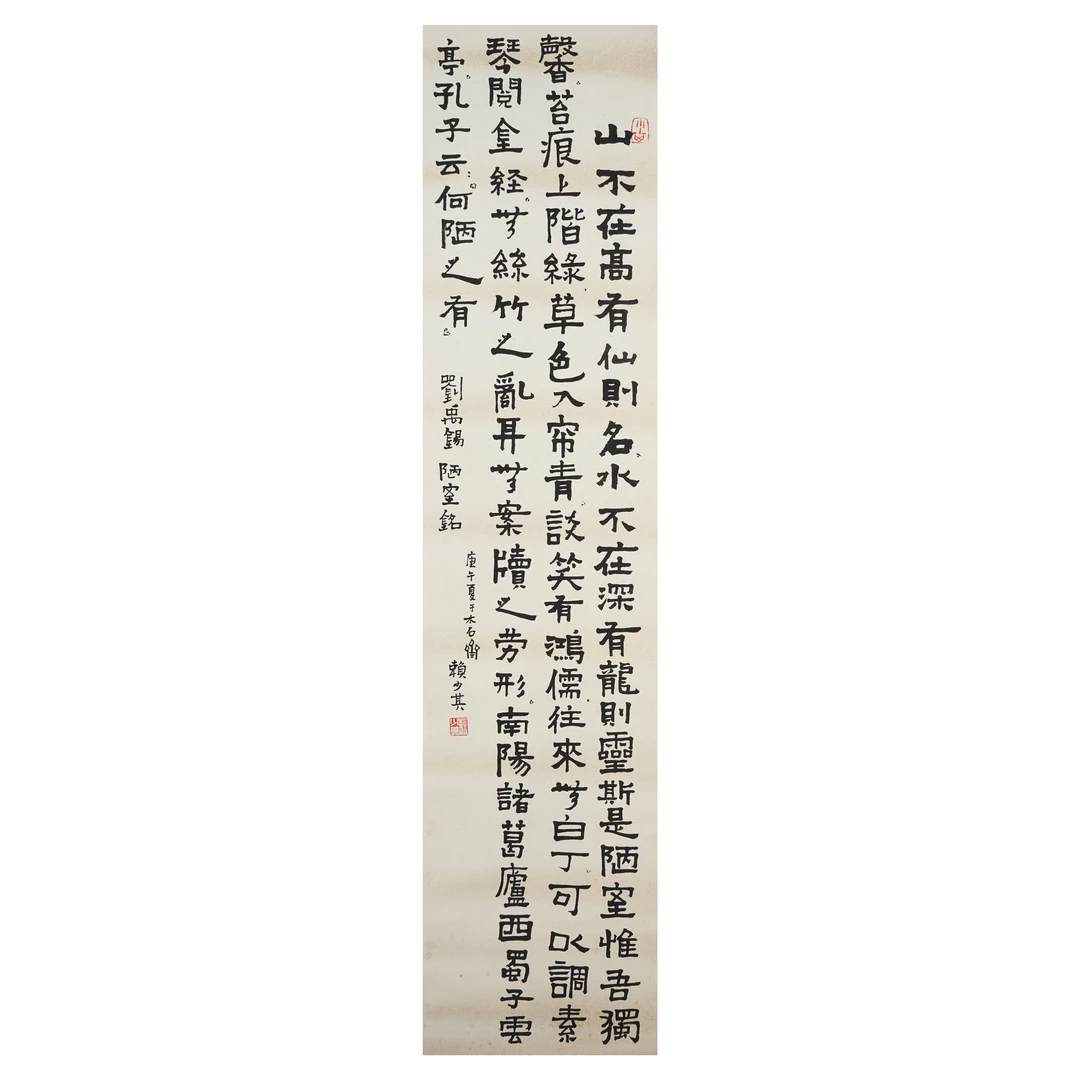 山不在高有仙則名、水不在深有龍則靈斯是陋室惟吾獨
馨。苔痕上階綠、草色入帘青、談笑有鴻儒、往來無白丁。可以調素
琴閱金経。無絲竹之亂耳無案牘之劳形。南陽諸葛廬西蜀子雲
亭。孔子云：。何陋之有。 劉禹錫 陋室銘
庚午夏于木石齋
賴少其